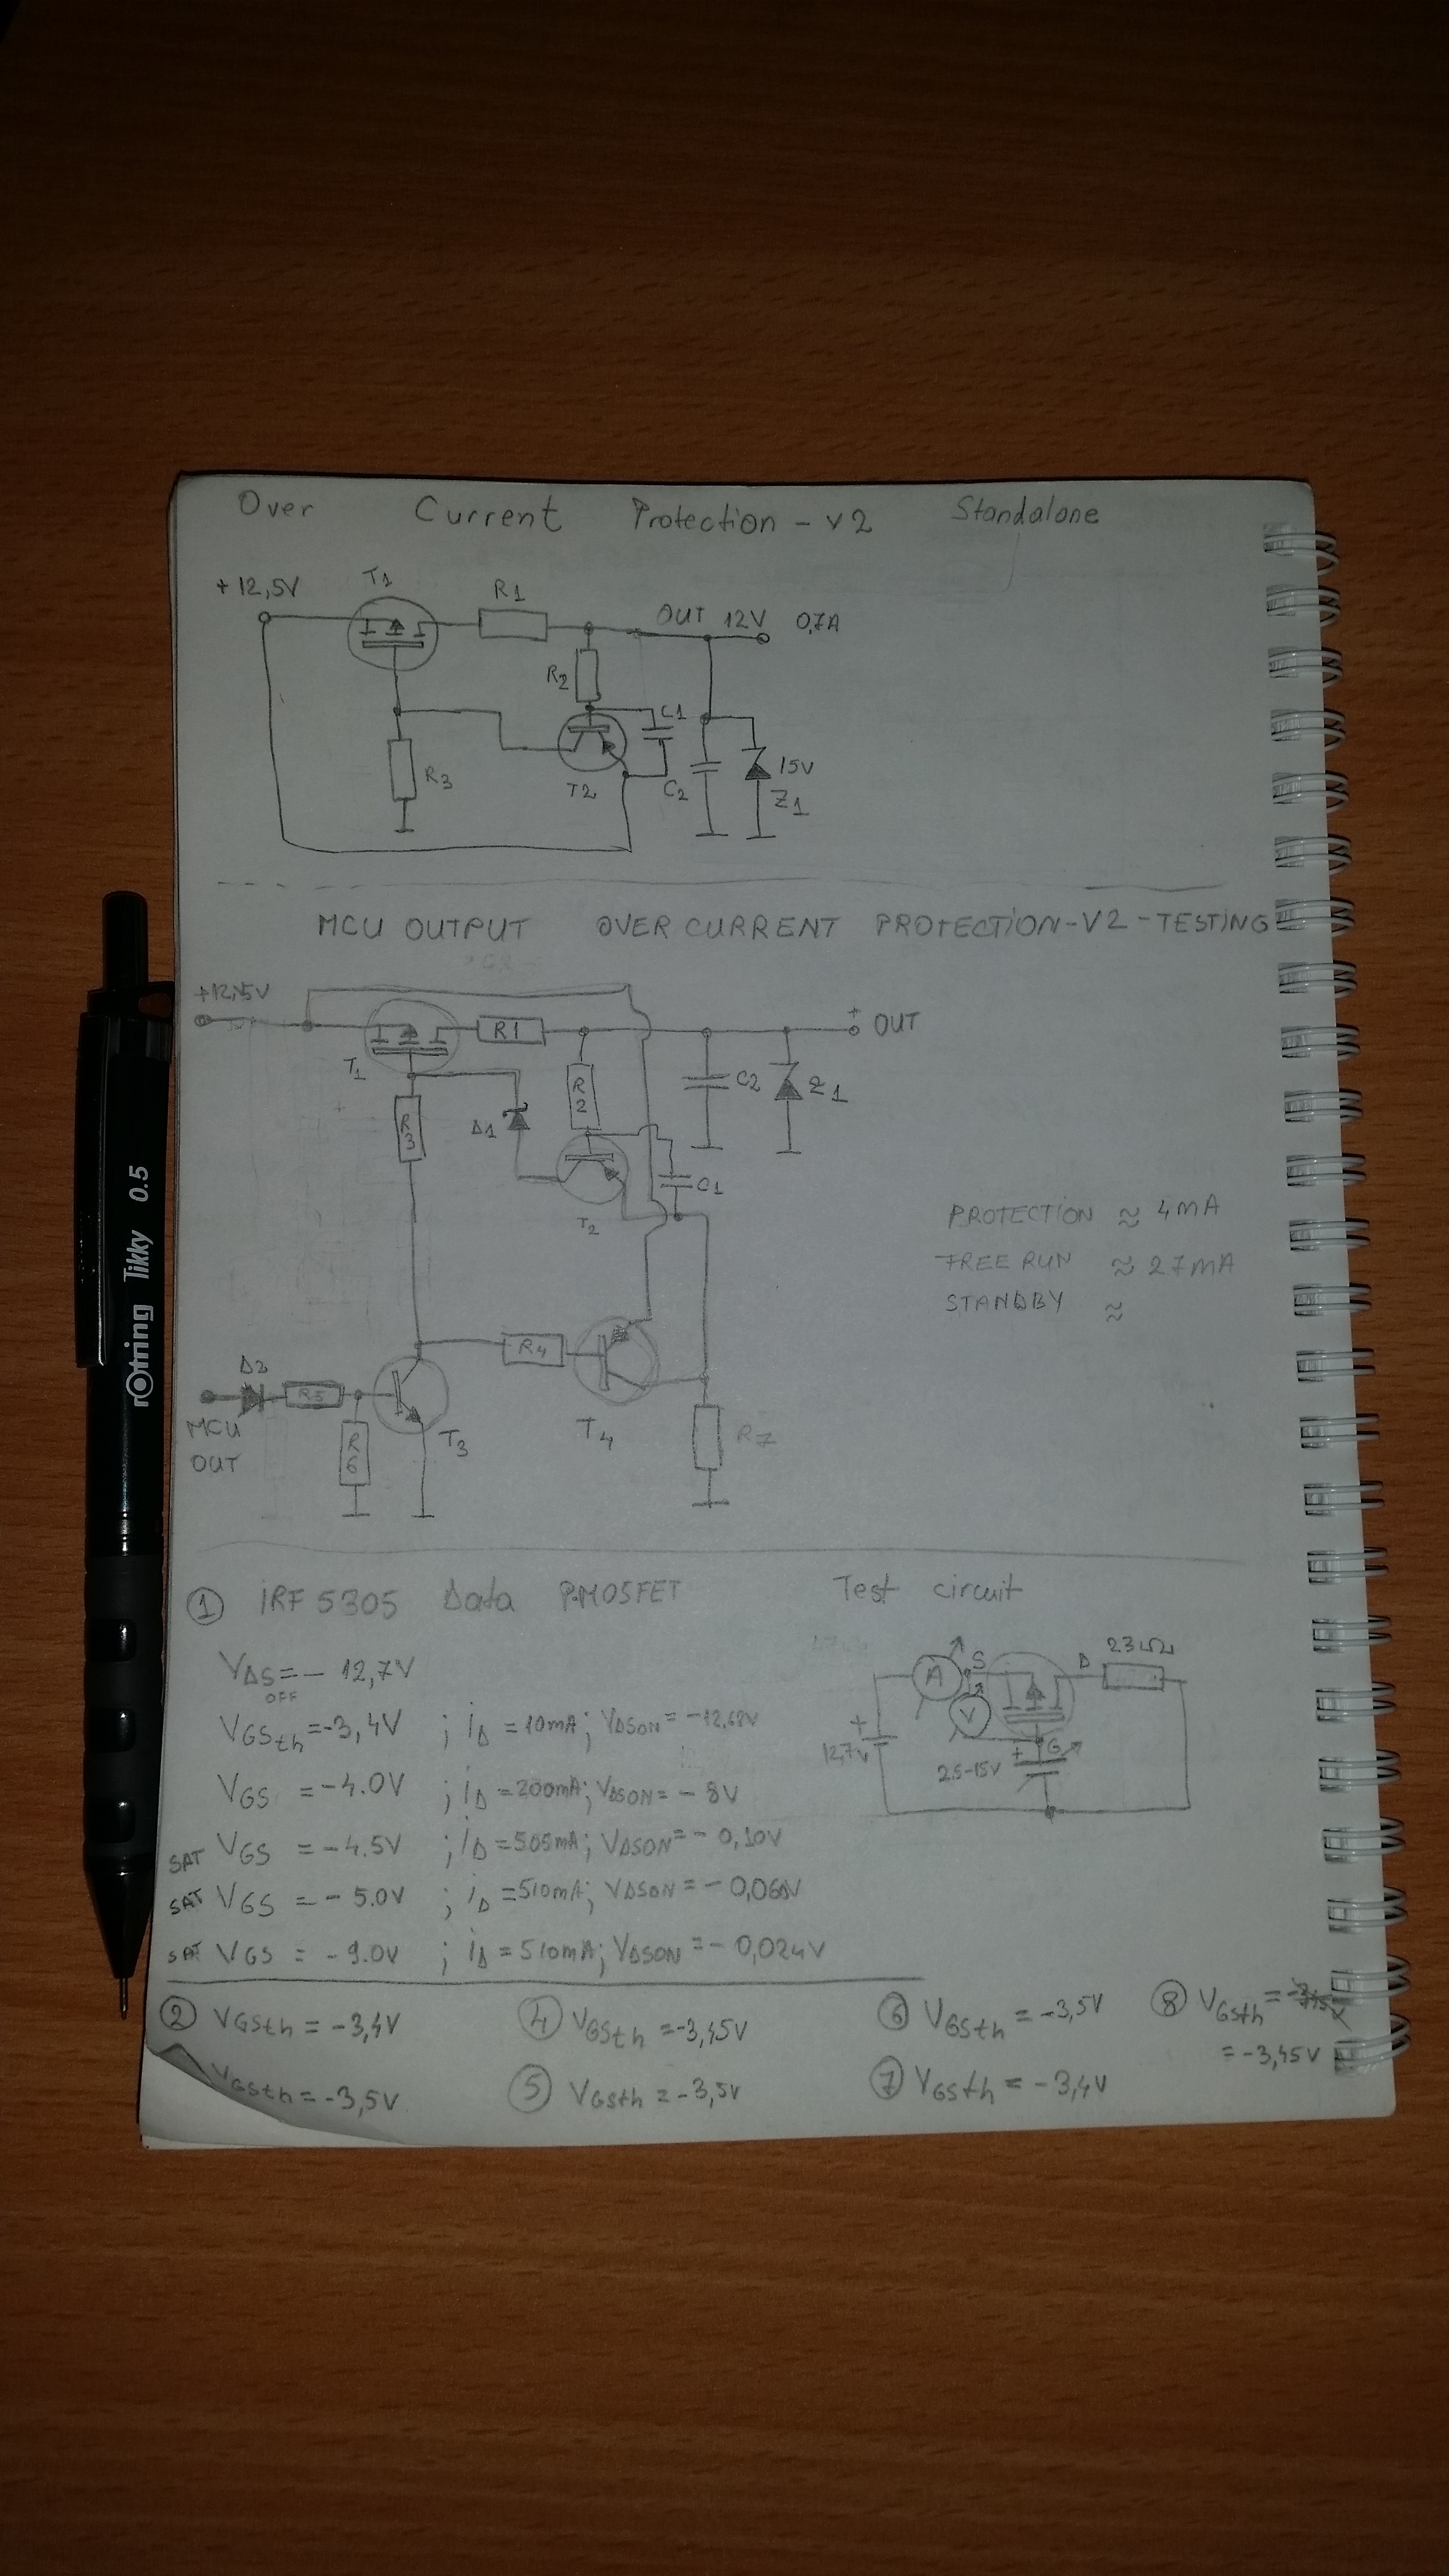 Over Current Protection - v2 Standalone
+12,5V
T1
R1
OUT 12V 0,7A
R2
C1
R3
T2
C2
15V
Z1
MCU OUTPUT OVER CURRENT PROTECTION-V2-TESTING
R1
+
OUT
T1
R3
Δ1
R2
C2
Z1
C1
T2
PROTECTION ≈ 4mA
FREE RUN ≈ 27mA
STANDBY ≈
R4
Δ2
R5
MCU
OUT
R6
T3
T4
R7
① iRF 5305 Data P-MOSFET
Test circuit
VΔS = - 12,7V
OFF
VGSth = -3,4V ; iΔ = 10mA; VΔSON = -12,68V
VGS = -4.0V ; iΔ = 200mA; VΔSON = - 8V
SAT VGS = -4.5V ; iΔ = 505mA; VΔSON = - 0,10V
SAT VGS = - 5.0V ; iΔ = 510mA; VΔSON = - 0,060V
SAT VGS = - 9.0V ; iΔ = 510mA; VΔSON = - 0,024V
A
S
Δ
V
+
12,7V
+
G
2.5-15V
② VGSth = -3,4V
④ VGSth = -3,45V
⑥ VGSth = -3,5V
⑧ VGSth =
= -3,45V
VGSth = -3,5V
⑤ VGSth = -3,5V
⑦ VGSth = -3,4V
rOtring Tikky 0.5